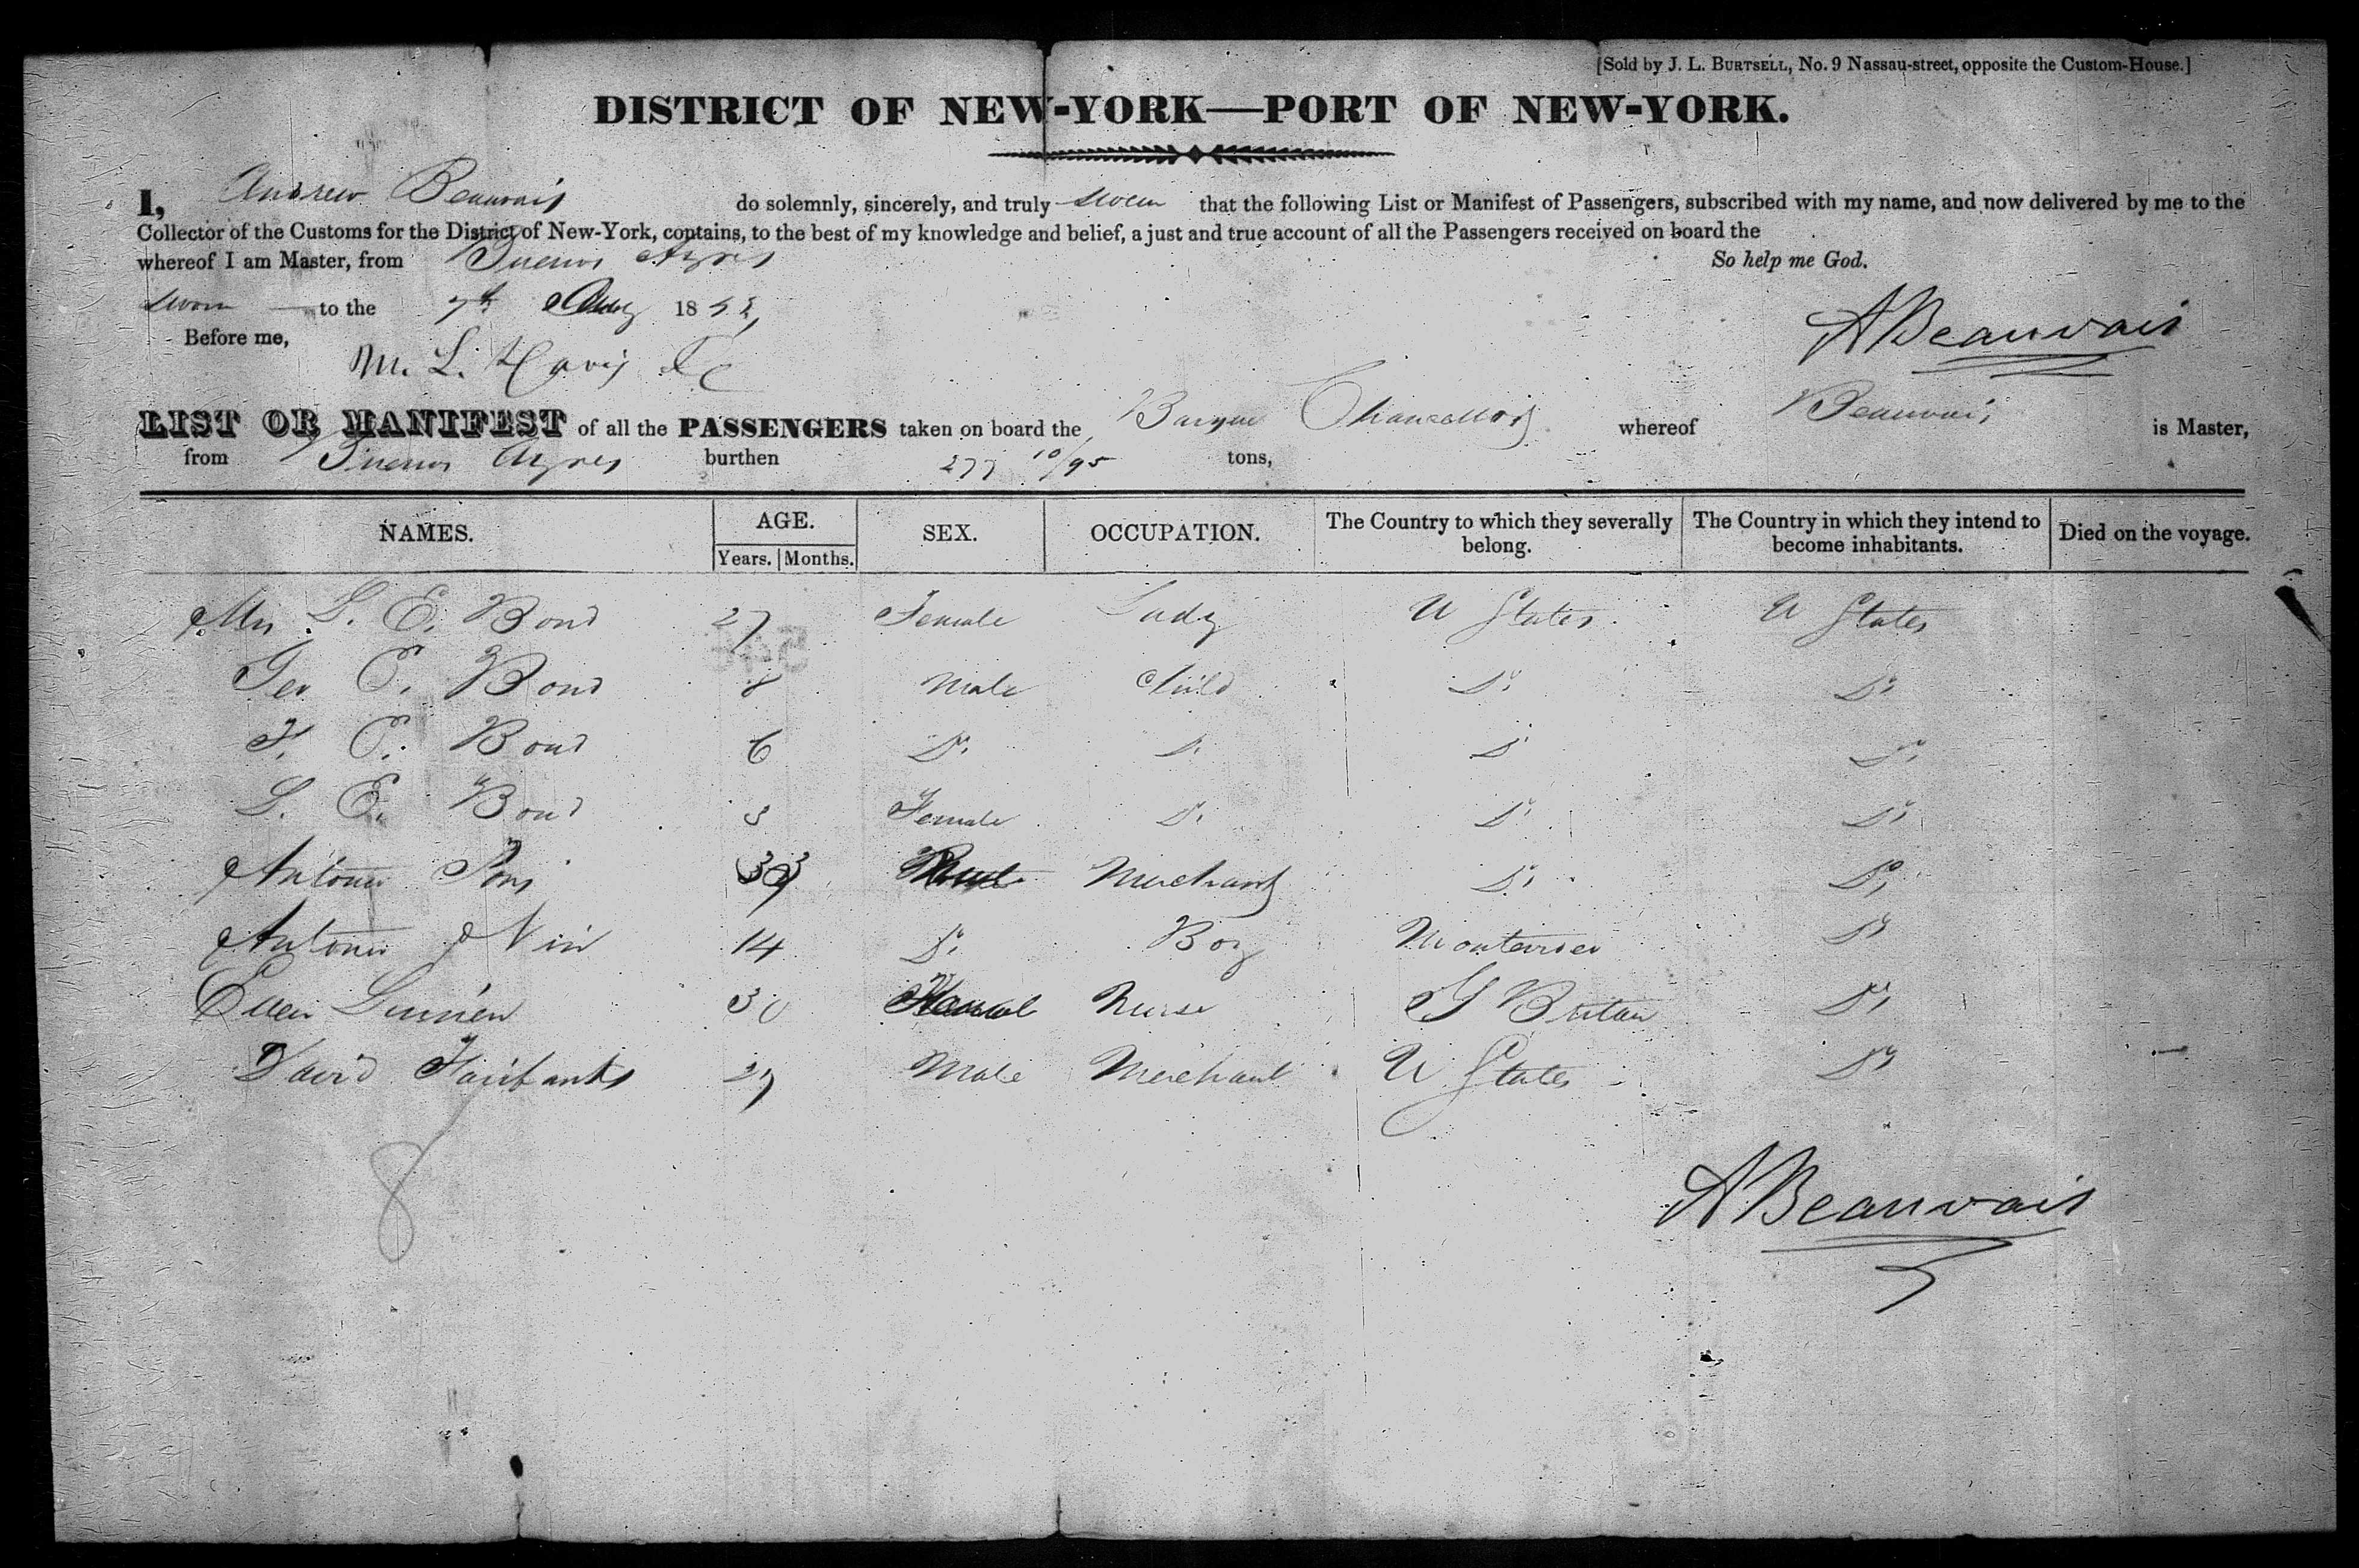 [Sold by J. L. BURTSELL, No. 9 Nassau-street, opposite the Custom-House.]
DISTRICT OF NEW-YORK—PORT OF NEW-YORK.
I, Andrew Beauvais do solemnly, sincerely, and truly swear that the following List or Manifest of Passengers, subscribed with my name, and now delivered by me to the
Collector of the Customs for the District of New-York, contains, to the best of my knowledge and belief, a just and true account of all the Passengers received on board the
whereof I am Master, from Buenos Ayres So help me God.
Sworn to the 7th 18
Before me, A Beauvais
M. L. Davis
LIST OR MANIFEST of all the PASSENGERS taken on board the Barque Chancellor whereof Beauvais is Master,
from Buenos Ayres burthen 277 10/95 tons,
NAMES. AGE. SEX. OCCUPATION. The Country to which they severally belong. The Country in which they intend to become inhabitants. Died on the voyage.
Years. Months.
Mrs L. E. Bond 27 Female Lady U States U States
Geo E. Bond 8 Male Child Do Do
F. E. Bond 6 Do Do Do Do
L. E. Bond 3 Female Do Do Do
Antonio Pons Merchant Do Do
Antonio Nin 14 Do Boy Montevideo Do
Ellen 30 Nurse G Britain Do
David Fairbanks 27 Male Merchant U States Do
8
A Beauvais